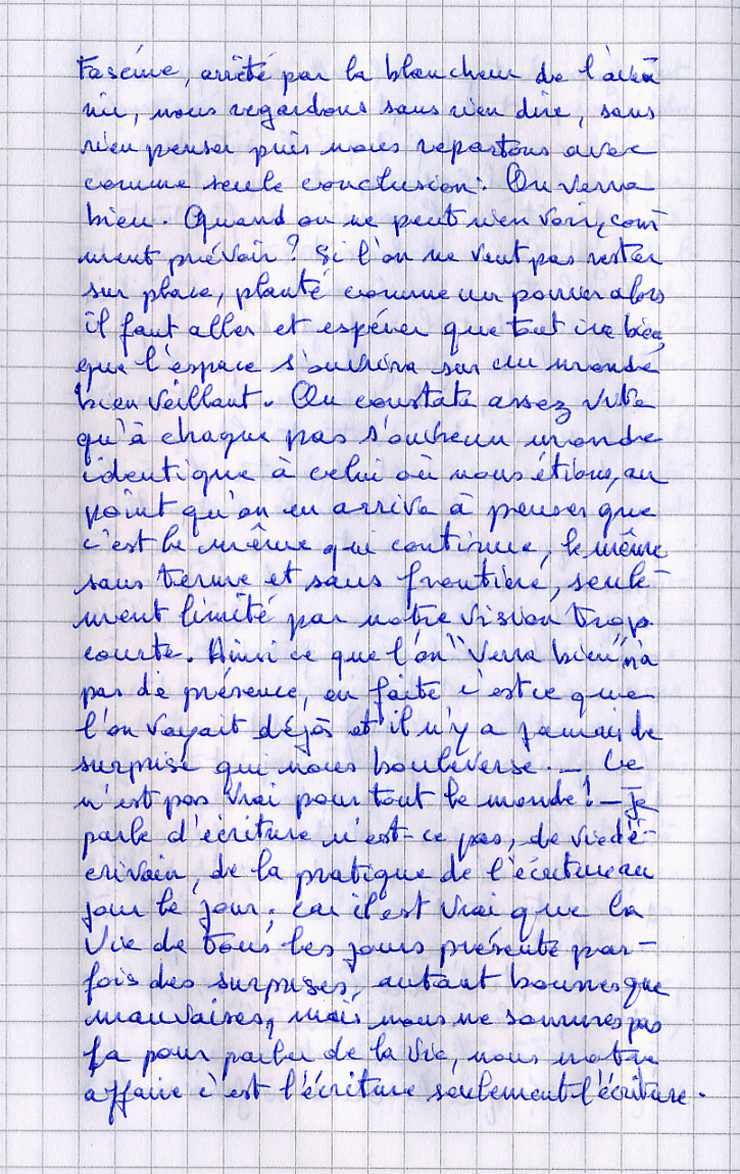 Fasciné, arrêté par la blancheur de l'ave
nir, nous regardons sans rien dire, sans
rien penser puis nous repartons avec
comme seule conclusion : On verra
bien. Quand on ne peut rien voir, com
ment prévoir ? Si l'on ne veut pas rester
sur place, planté comme un poirier alors
il faut aller et espérer que tout ira bien,
que l'espace s'ouvrira sur un monde
bienveillant. On constate assez vite
qu'à chaque pas s'ouvre un monde
identique à celui où nous étions, au
point qu'on en arriva à penser que
c'est le même qui continue, le même
sans terme et sans frontière, seule-
ment limité par notre vision trop
courte. Ainsi ce que l'on "verra bien" n'a
pas de présence, en faite c'est ce que
l'on voyait déjà et il n'y a jamais de
surprise qui nous bouleverse. — Ce
n'est pas vrai pour tout le monde ! — Je
parle d'écriture n'est-ce pas, de vie d'é-
crivain, de la pratique de l'écriture au
jour le jour, car il est vrai que la
vie de tous les jours présente par-
fois des surprises, autant bonnes que
mauvaises, mais nous ne sommes pas
là pour parler de la vie, nous notre
affaire c'est l'écriture seulement l'écriture.